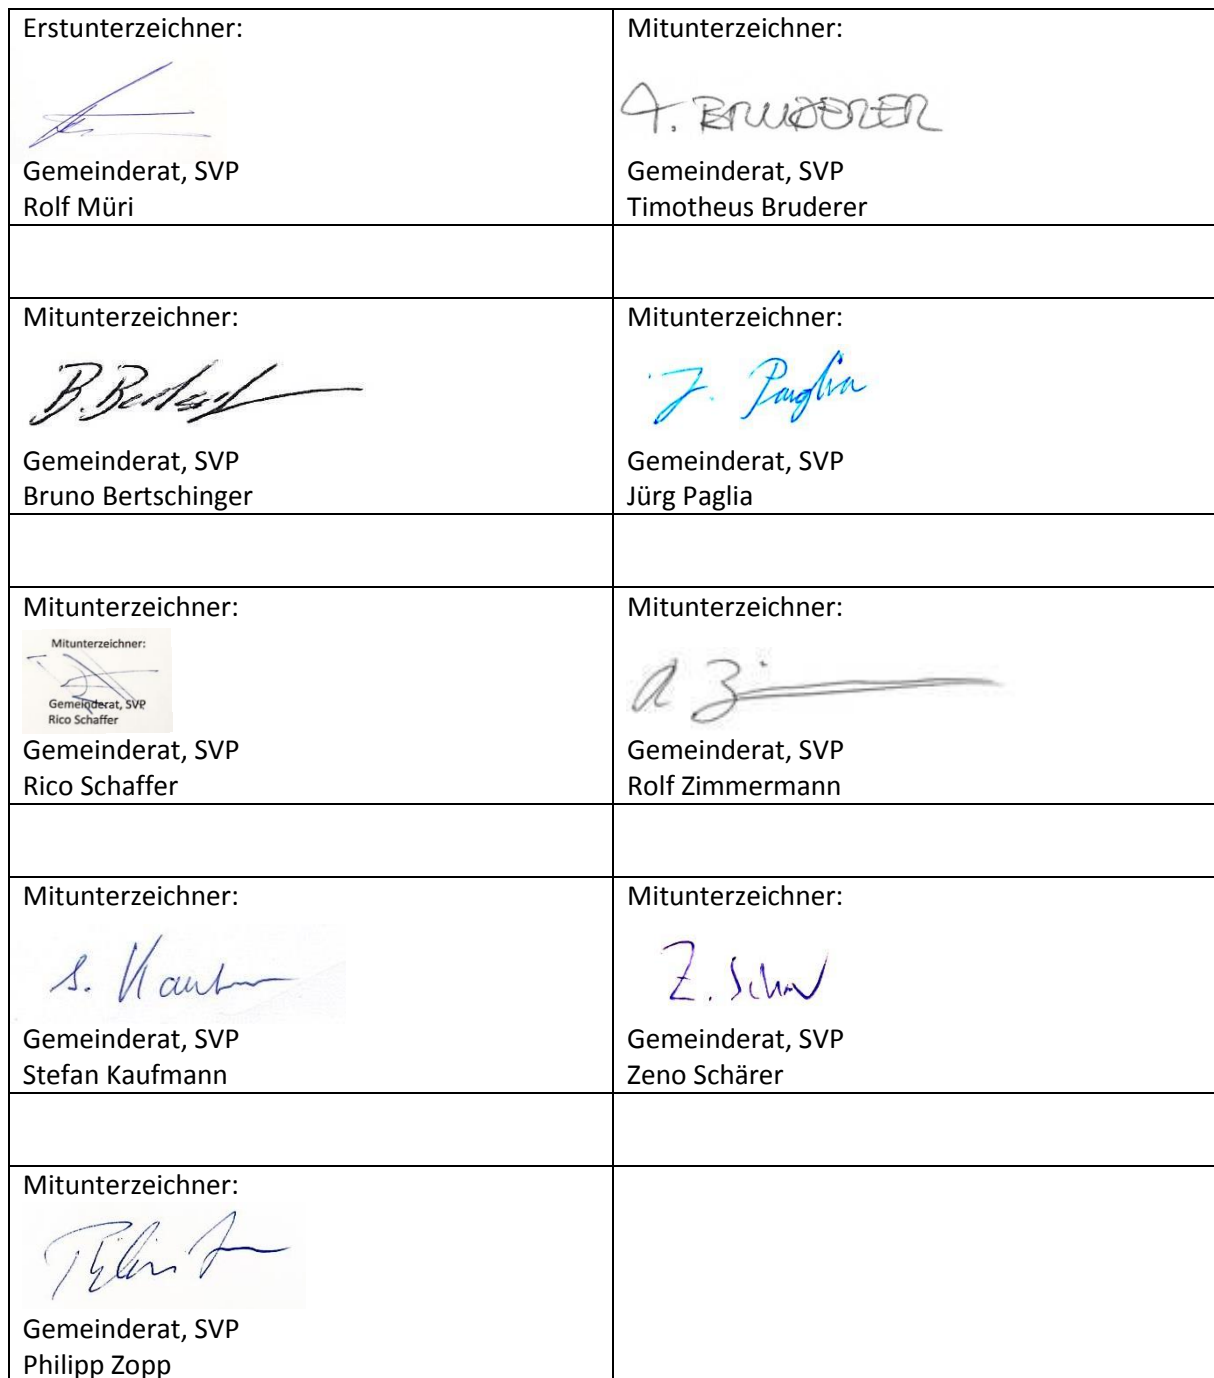 Erstunterzeichner:
Gemeinderat, SVP
Rolf Müri
Mitunterzeichner:
T. BRUDERER
Gemeinderat, SVP
Timotheus Bruderer
Mitunterzeichner:
Gemeinderat, SVP
Bruno Bertschinger
Mitunterzeichner:
J. Paglia
Gemeinderat, SVP
Jürg Paglia
Mitunterzeichner:
Mitunterzeichner:
Gemeinderat, SVP
Rico Schaffer
Gemeinderat, SVP
Rico Schaffer
Mitunterzeichner:
Gemeinderat, SVP
Rolf Zimmermann
Mitunterzeichner:
Gemeinderat, SVP
Stefan Kaufmann
Mitunterzeichner:
Gemeinderat, SVP
Zeno Schärer
Mitunterzeichner:
Gemeinderat, SVP
Philipp Zopp